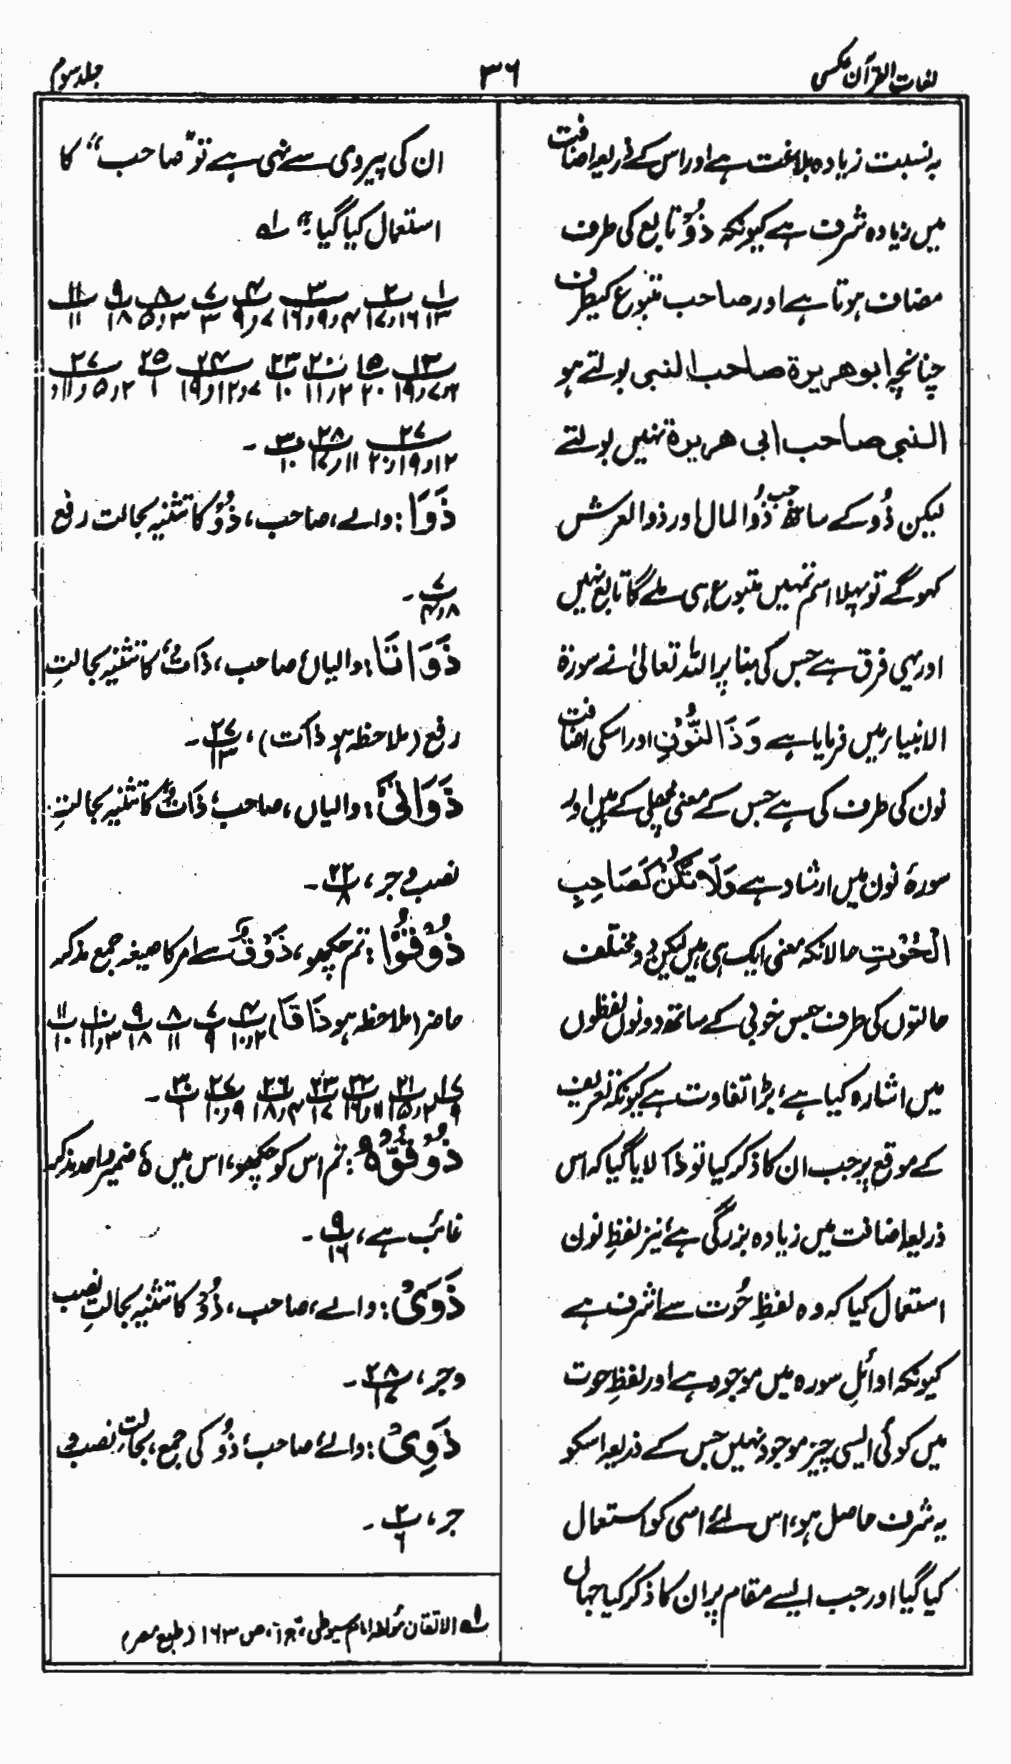 لغات القرآن عکسی
۳۶
جلد سوم
بہ نسبت زیادہ بلاغت ہے اور اس کے ذریعہ اضافت
میں زیادہ شرف ہے کیونکہ ذُوْ تابع کی طرف
مضاف ہوتا ہے اور صاحب متبوع کیطرف
چنانچہ ابو ھریرۃ صاحب النبی بولتے ہو
النبی صاحب ابی ھریرۃ نہیں بولتے
لیکن ذُو کے ساتھ جب ذُو المال اور ذو العرش
کہو گے تو پہلا اسم تمہیں متبوع ہی ملے گا تابع نہیں
اور یہی فرق ہے جس کی بنا پر اللہ تعالیٰ نے سورۃ
الانبیاء میں فرمایا ہے وَذَا النُّوْنِ اور اسکی اضافت
نون کی طرف کی ہے جس کے معنی مچھلی کے ہیں اور
سورۂ نون میں ارشاد ہے وَلَا تَكُنْ كَصَاحِبِ
الْحُوْتِ حالانکہ معنی ایک ہی ہیں لیکن دو مختلف
حالتوں کی طرف جس خوبی کے ساتھ دونوں لفظوں
میں اشارہ کیا ہے، بڑا تفاوت ہے کیونکہ تعریف
کے موقع پر جب ان کا ذکر کیا تو ذَا لایا گیا کہ اس
ذریعہ اضافت میں زیادہ بزرگی ہے نیز لفظِ نون
استعمال کیا کہ وہ لفظِ حُوت سے اشرف ہے
کیونکہ اوائلِ سورہ میں موجود ہے اور لفظِ حوت
میں کوئی ایسی چیز موجود نہیں جس کے ذریعہ اسکو
یہ شرف حاصل ہو، اس لئے اسی کو استعمال
کیا گیا اور جب ایسے مقام پر ان کا ذکر کیا جہاں
ان کی پیروی سے نہی ہے تو "صاحب" کا
استعمال کیا گیا۔" لہ
۱/۱۳ ۲/۱۶و۱۷ ۳/۴و۹و۱۶ ۴/۷و۹ ۷/۳ ۸/۳و۵ ۹/۱۸ ۱۱/۱۱
۱۳/۶و۷و۱۹ ۱۵/۲۰ ۲۰/۲و۱۱ ۲۳/۱۰ ۲۴/۷و۱۲و۱۹ ۲۵/۱ ۲۷/۲و۵و۱۱و
۲۷/۱۲و۱۹و۲۰ ۲۸/۱۱و۱۷ ۳۰/۱۰ ۔
ذَوَا : والے، صاحب، ذُوْ کا تثنیہ بحالت رفع
۷/۸و۴ ۔
ذَوَاتَا : والیاں صاحب، ذَاتُ کا تثنیہ بحالتِ
رفع (ملاحظہ ہو ذَات)، ۲۷/۱۳ ۔
ذَوَاتَیْ : والیاں، صاحب، ذَاتُ کا تثنیہ بحالتِ
نصب و جر، ۲۲/۸ ۔
ذُوْقُوْا : تم چکھو، ذَوْقٌ سے امر کا صیغہ جمع مذکر
حاضر (ملاحظہ ہو ذَاقَا) ۴/۲و۱۰ ۷/۹ ۸/۱۱ ۹/۱۸ ۱۰/۳و۱۱ ۱۱/۱۰
۱۷/۹ ۲۱/۲و۱۵ ۲۲/۱۱و۱۶ ۲۳/۱۷ ۲۶/۴و۱۸ ۲۷/۹و۱۰ ۳۰/۱ ۔
ذُوْقُوْهُ : تم اس کو چکھو، اس میں ہٗ ضمیر واحد مذکر
غائب ہے، ۹/۱۶ ۔
ذَوَیْ : والے، صاحب، ذُوْ کا تثنیہ بحالتِ نصب
و جر، ۲۸/۱۷ ۔
ذَوِیْ : والے صاحب، ذُوْ کی جمع، بحالت نصب و
جر، ۲/۶ ۔
لہ الاتقان مؤلفہ امام سیوطی، ج۱، ص ۱۶۳ (طبع مصر)